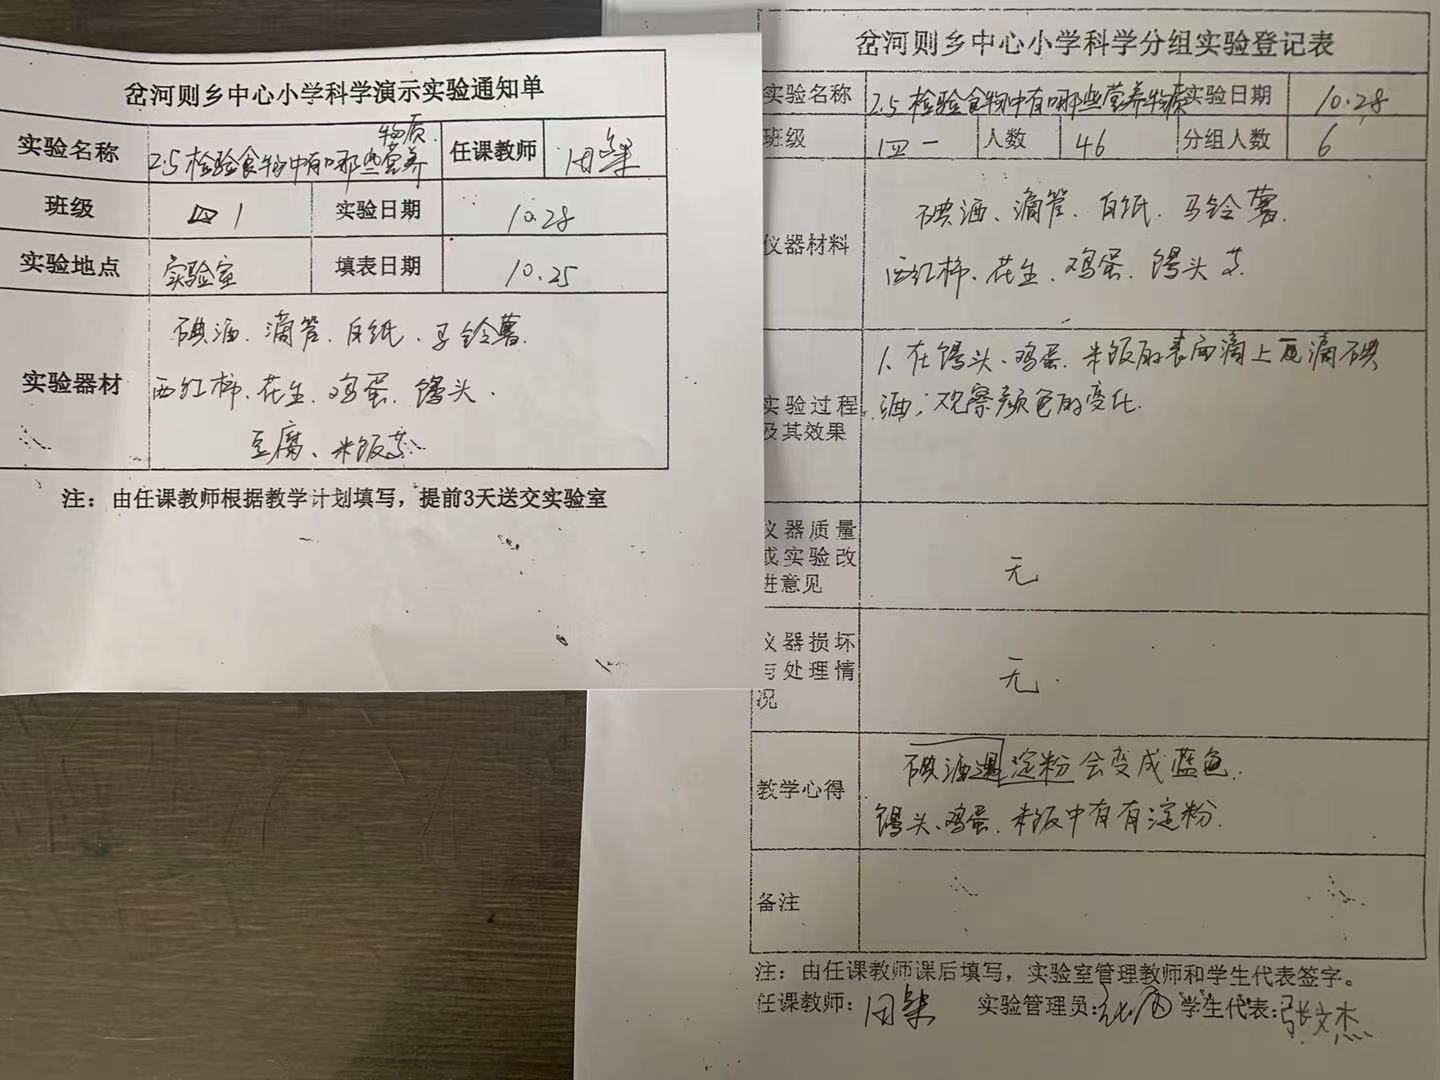 岔河则乡中心小学科学演示实验通知单
实验名称 2.5 检验食物中有哪些营养物质 任课教师
班级 四1 实验日期 10.28
实验地点 实验室 填表日期 10.25
实验器材
碘酒、滴管、白纸、马铃薯、
西红柿、花生、鸡蛋、馒头、
豆腐、米饭等
注：由任课教师根据教学计划填写，提前3天送交实验室
岔河则乡中心小学科学分组实验登记表
实验名称 2.5 检验食物中有哪些营养物质 实验日期 10.28
班级 四一 人数 46 分组人数 6
仪器材料
碘酒、滴管、白纸、马铃薯、
西红柿、花生、鸡蛋、馒头等
实验过程
及其效果
1、在馒头、鸡蛋、米饭的表面滴上 滴碘
酒，观察颜色的变化.
仪器质量
或实验改
进意见
无
仪器损坏
与处理情
况
无.
教学心得
碘酒遇淀粉会变成蓝色.
馒头、鸡蛋、米饭中有有淀粉.
备注
注：由任课教师课后填写，实验室管理教师和学生代表签字。
任课教师： 实验管理员： 学生代表：张文杰